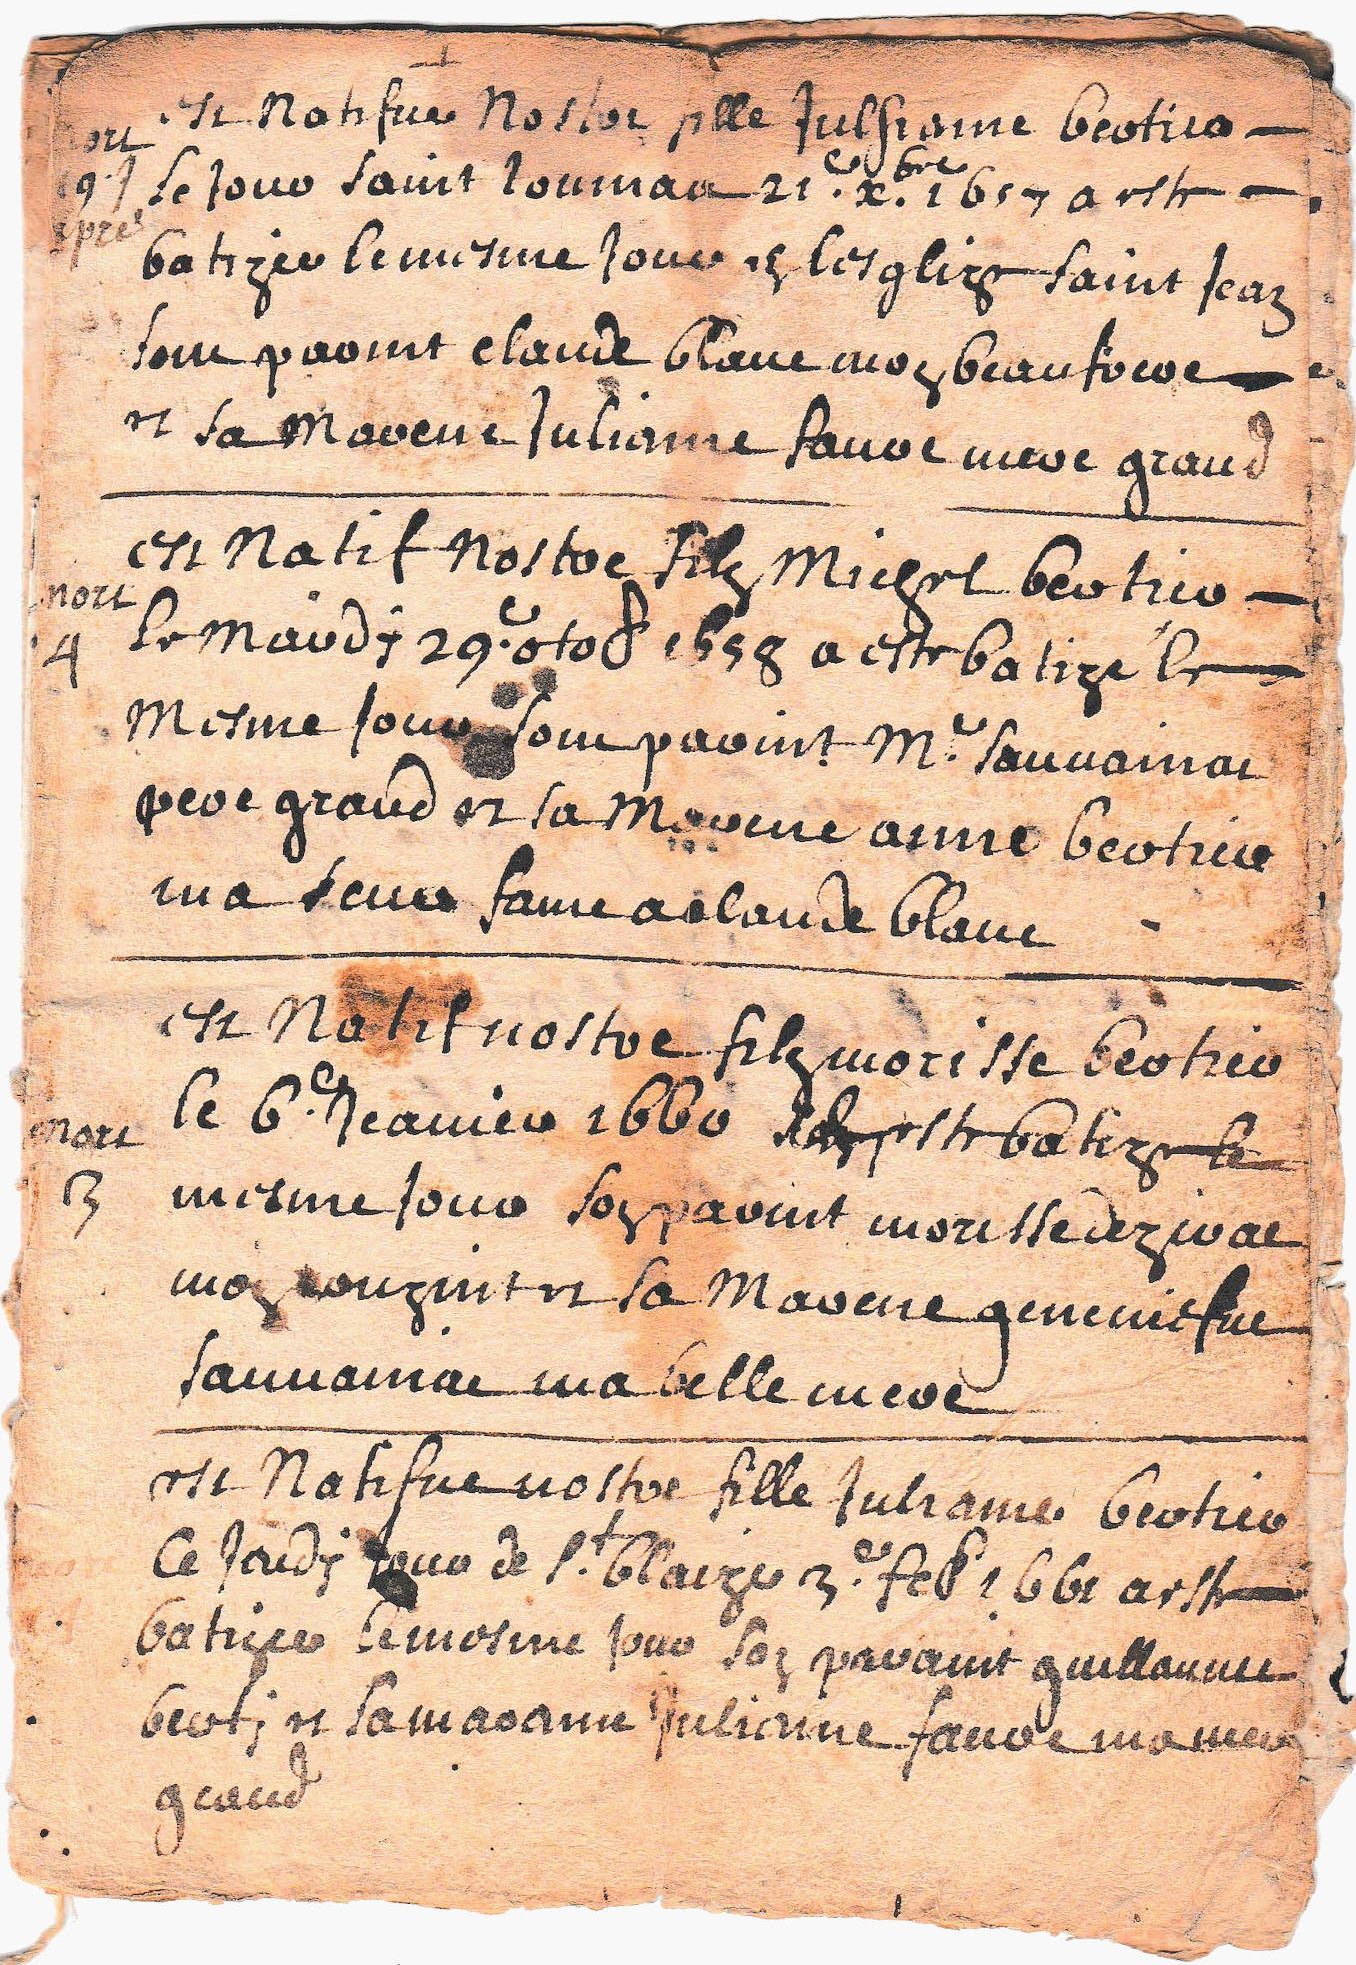 est Natifue Nostre fille Julhiane bertier
mort
le Jour saint Toumas 21.e x.bre 1657 a este
9 J
apres
batizee le mesme Jour en lesglize saint Jean
son parint claude blanc mon beaufrere
et sa Marene Julianne faure mere grand
est Natif Nostre filz Michel bertier
mort
le Mardy 29.e octob 1658 a este batize le
4
Mesme Jour son parint M.e sauvainac
pere grand et sa Marene anne bertier
ma seur fame a claude blanc
est Natif nostre filz morisse bertier
le 6.e Jeanvier 1660 este batize le
mort
mesme Jour son parint morisse
3
mon couzint et sa Marene geneviefue
sauvainac ma belle mere
est Natifue nostre fille Julianne bertier
le Jeudy Jour de S.t blaize 3.e feb 1661 a este
batizee le mesme Jour son paraint guillaume
berti et sa maranne Julianne faure ma mere
grand